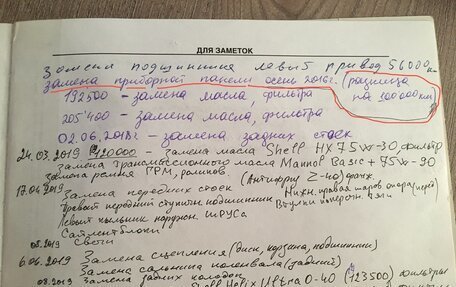 ДЛЯ ЗАМЕТОК
Замена подшипника левый привод 56000 км
замена приборной панели осень 2016г. (разница
192500 – замена масла, фильтра на 100000 км)
205'400 – замена масла, фильтра
02.06.2018г – замена задних стоек
24.03.2019 420000 – замена масла Shell HX7 5W-30 фильтр
Замена трансмиссионного масла Mannol Basic + 75W-90
замена ремня ГРМ, роликов. (Антифриз Z-40)
17.04.2019 Замена передних стоек Нижн. правая шаров опора (пер)
Правый передний ступичн. подшипник Втулки
Левый пыльник наружн. ШРУСа
Сайлентблоки
05.2019 Свечи
6.06.2019 Замена сцепления (диск, корзина, подшипник)
Замена сальника коленвала (задний)
08.2019 Замена задних колодок
Shell Helix Ultra 0-40 (123500) фильтры